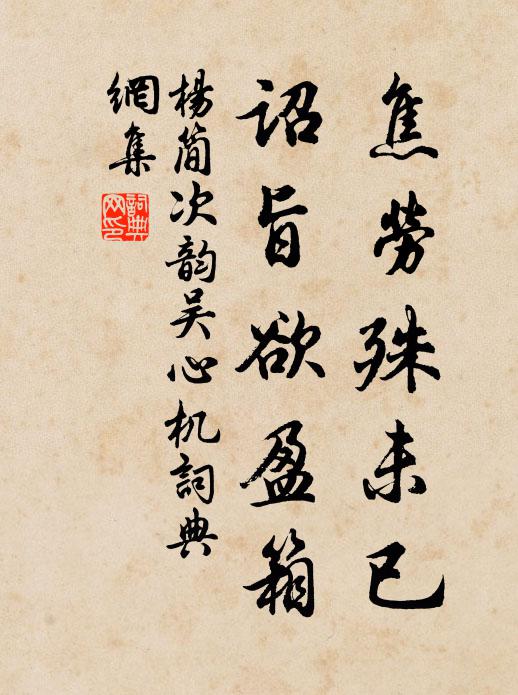 焦勞殊未已
詔旨欲盈箱
楊簡次韵吴心机詞典
網集
詞典网印